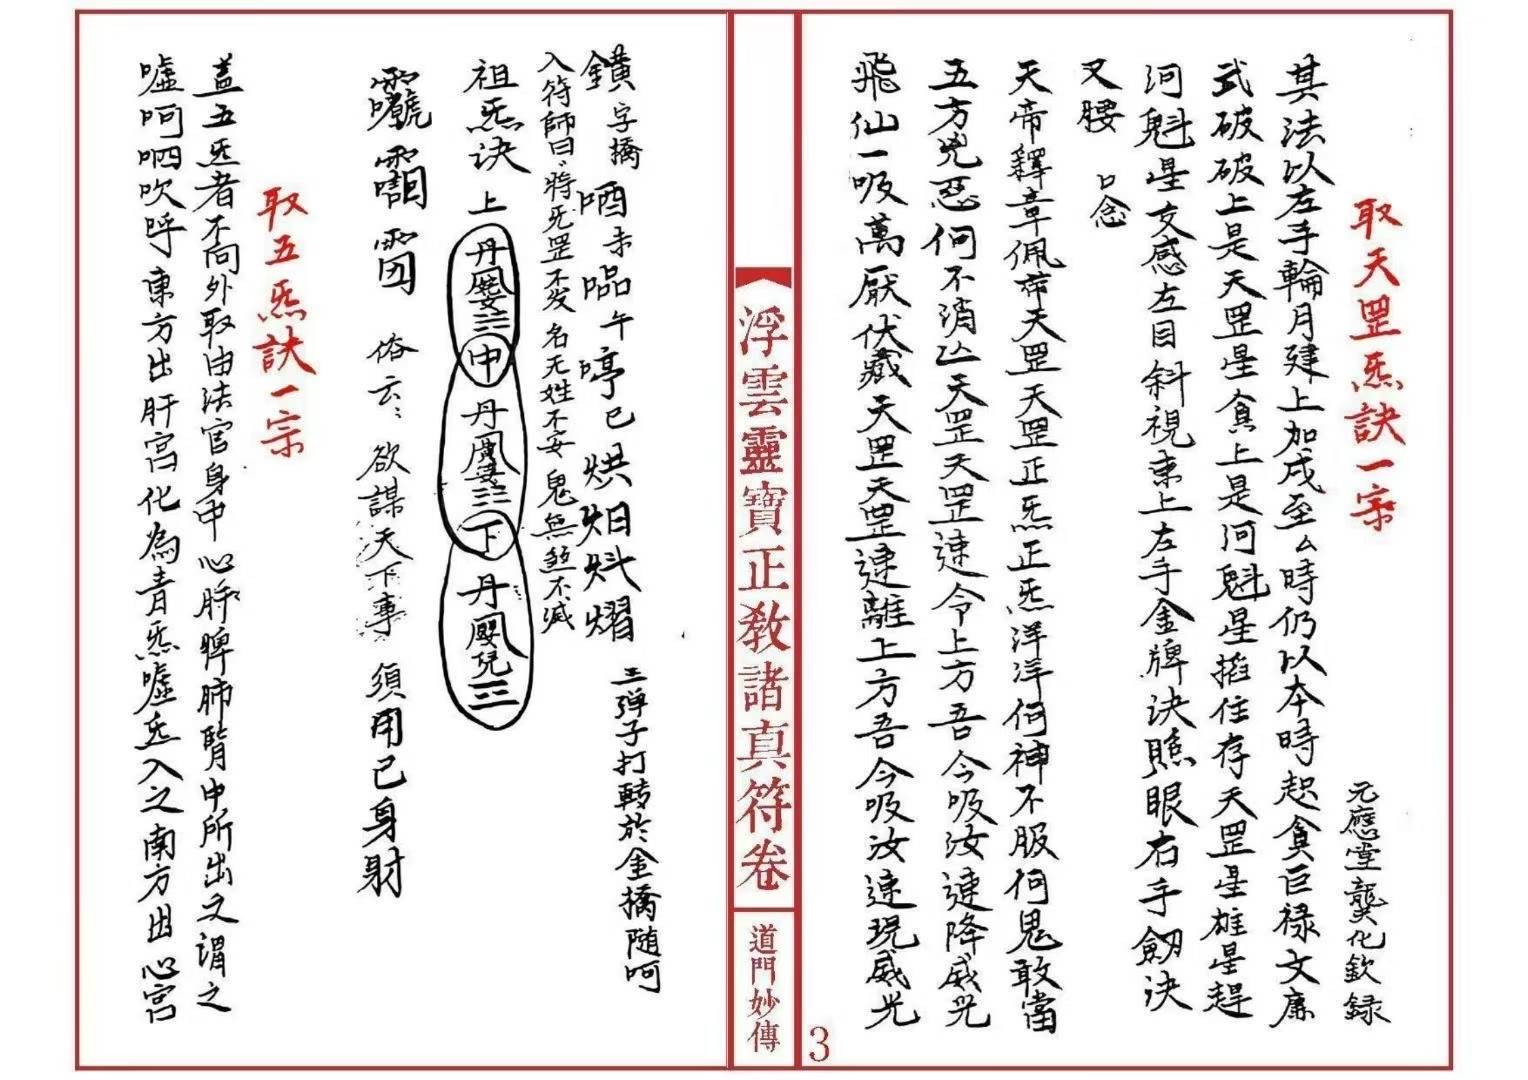 取天罡炁訣一宗
元應堂龔化欽録
其法以左手輪月建上加戌至么時仍以本時起貪巨禄文廉
武破破上是天罡星貪上是河魁星掐住存天罡星雄星趕
河魁星交感左目斜視東上左手金牌决照眼右手劔决
叉腰 口念
天帝釋章佩帝天罡天罡正炁正炁洋洋何神不服何鬼敢當
五方兇惡何不消亾天罡天罡速令上方吾今吸汝速降威光
飛仙一吸萬厭伏藏天罡天罡速離上方吾今吸汝速現威光
浮雲靈寶正教諸真符卷
道門妙傳
3
鐄字擕哂未㗊午啈巳烘炟炓熠 三弾子打轉於金橋随呵
入符師曰將炁罡不发名无姓不安鬼無煞不滅
祖炁决 上 丹 中 丹 下 丹
俗云：欲謀天下事 須用己身射
取五炁訣一宗
盖五炁者不向外取由法官身中心肝脾肺腎中所出之謂之
嘘呵呬吹呼東方出肝宫化為青炁嘘炁入之南方出心宫